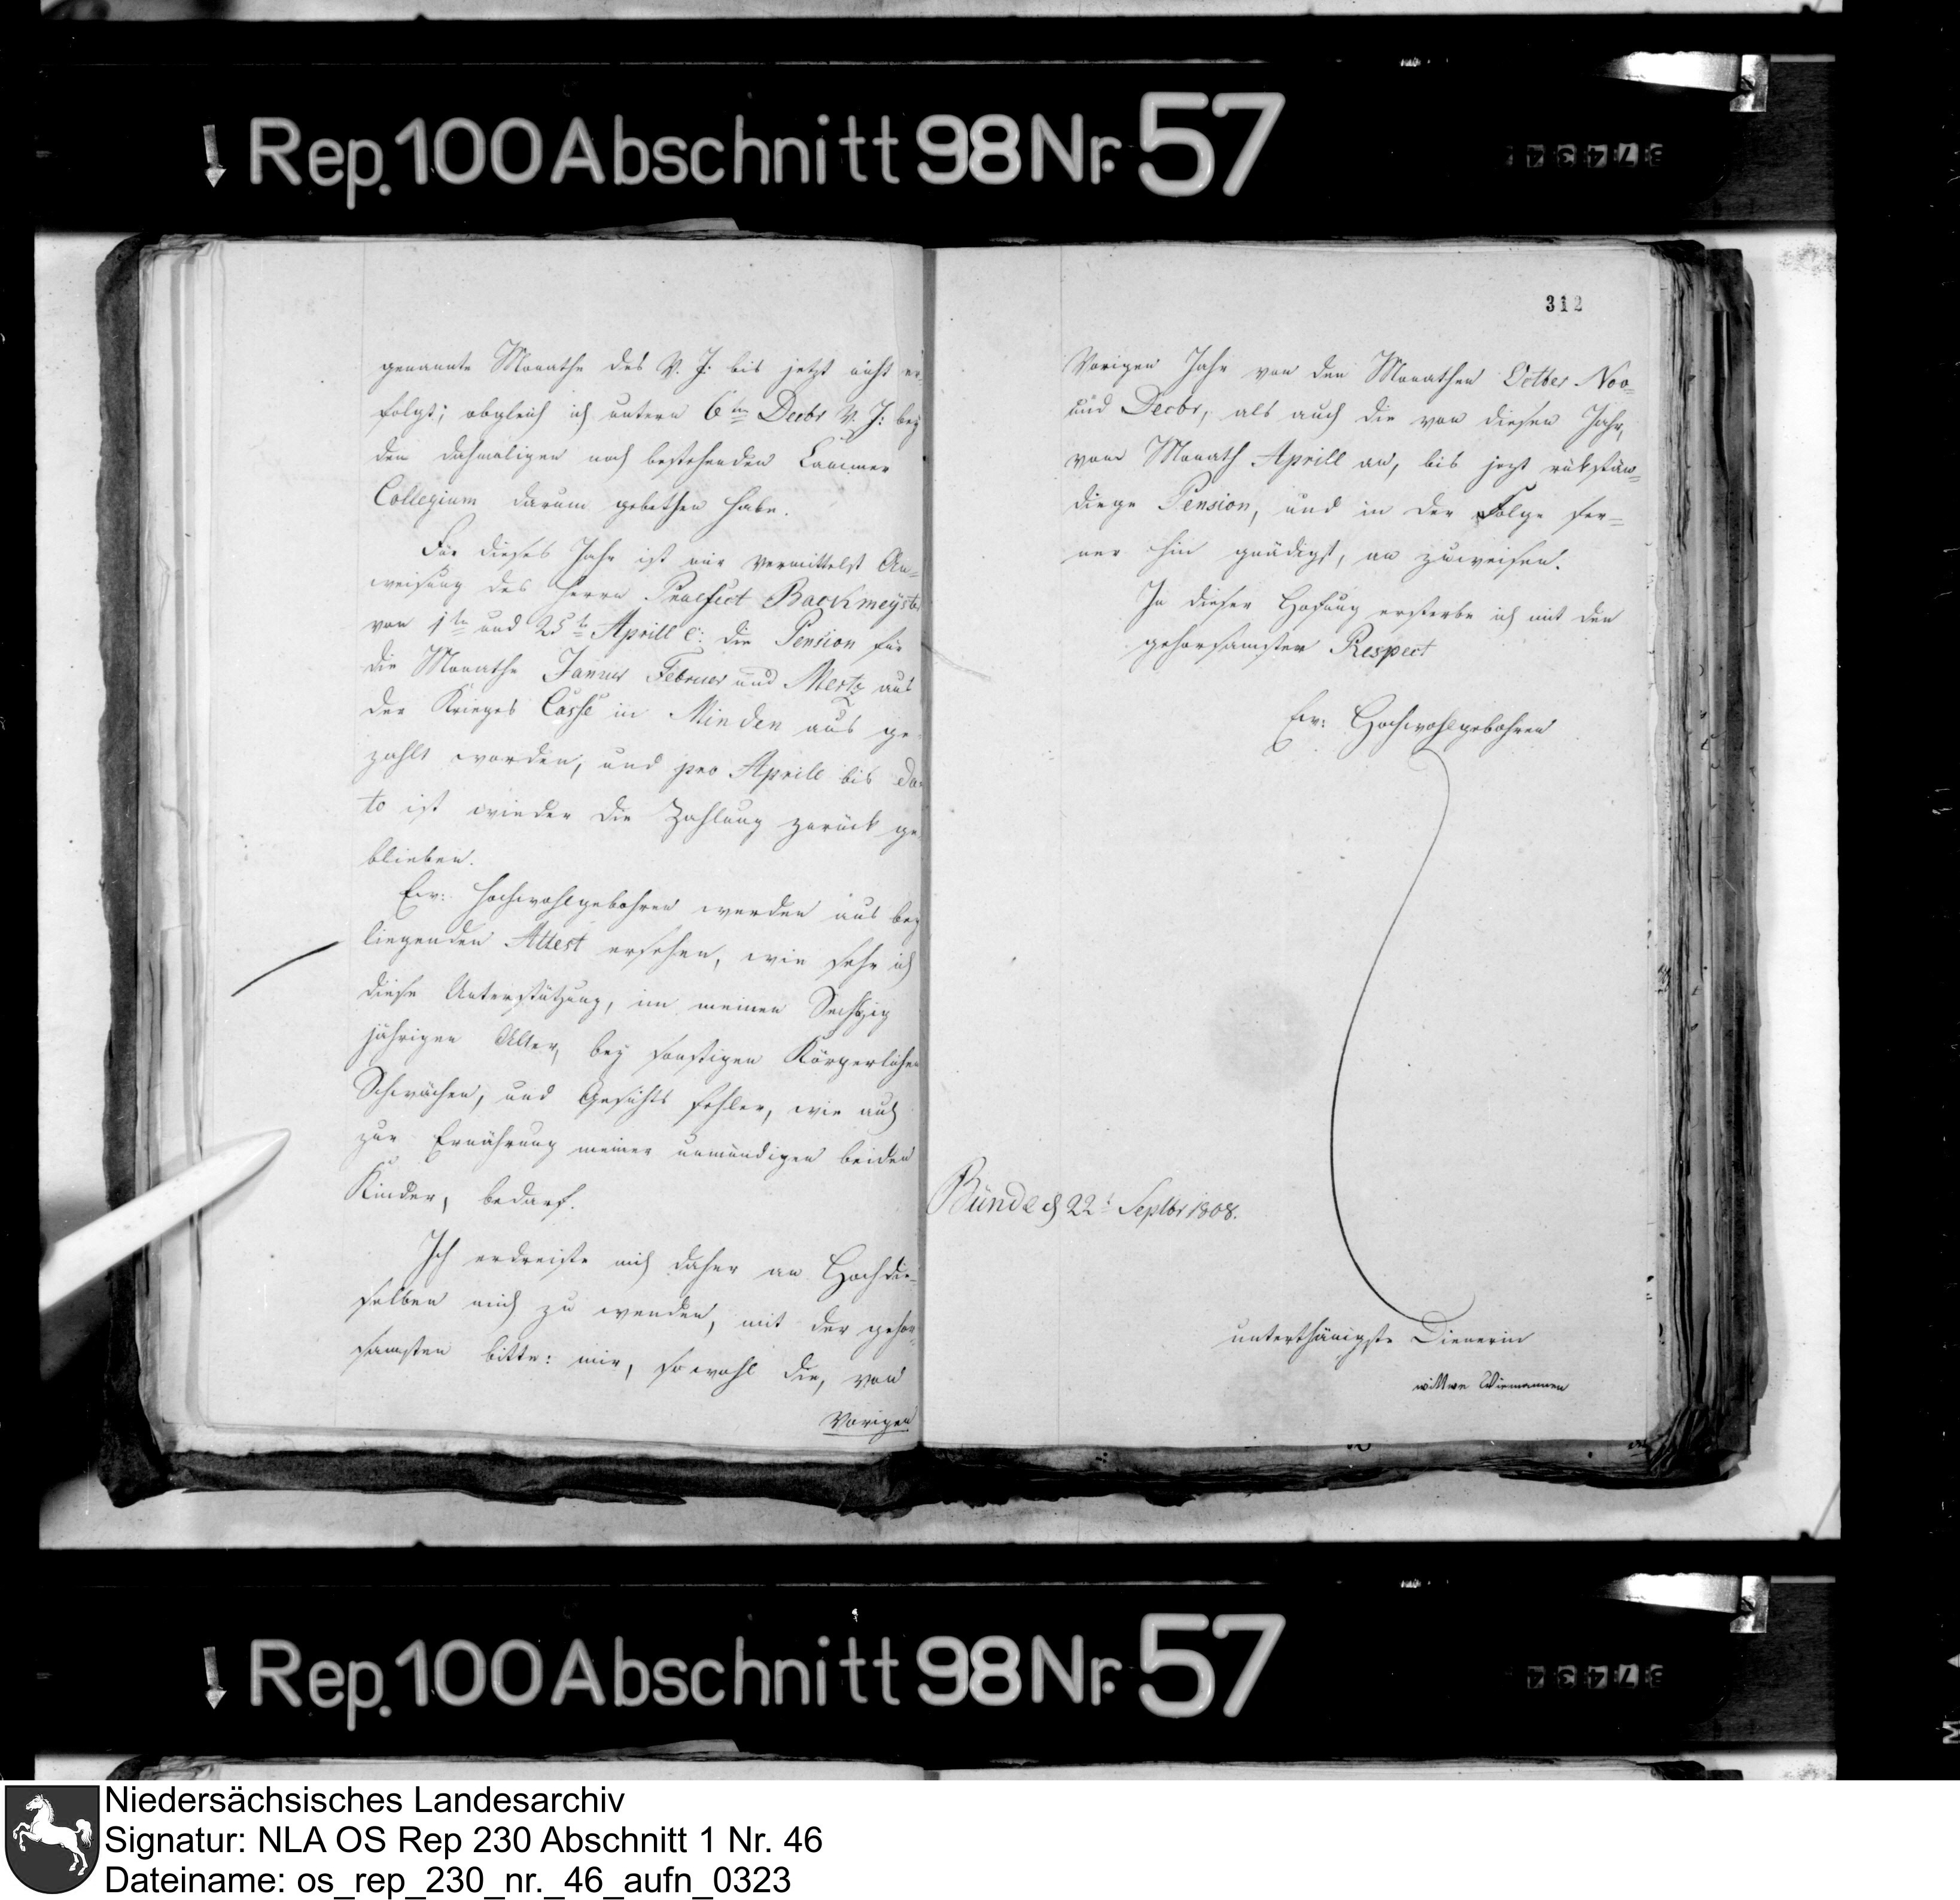 Rep. 100 Abschnitt 98 Nr. 57
genannte Monathe des v. J. bis jetzt nicht er-
folgt; obgleich ich unterm 6ten Decbr v. J: bey
den dahmaligen noch bestehenden Cammer
Collegium darum gebethen habe.
Für dieses Jahr ist mir vermittelst An-
weisung des Herrn Praefect Backmeyster
von 1ten und 25te Aprill c: die Pension für
die Monathe Januer Februer und Mertz aus
der Krieges Casse in Minden aus ge-
zahlt worden, und pro Aprill bis da-
to ist wieder die Zahlung zurück ge-
blieben.
Ew: Hochwohlgebohren werden aus bey
liegenden Attest ersehen, wie sehr ich
diese Unterstützung, im meinen Sechzig
jährigen Alter, bey sonstigen Körperlichen
Schwächen, und Gesichts fehler, wie auch
zur Ernährung meiner unmündigen beiden
Kinder, bedarf.
Ich erdreiste mich daher an Hochdie-
selben mich zu wenden, mit der gehor-
samsten bitte: mir, so wohl die, von
Vorigen
312
Vorigen Jahr von den Monathen Octber Nov-
und Decbr, als auch die von diesen Jahr,
vom Monath Aprill an, bis jezt rükstän-
diege Pension, und in der Folge fer-
ner hin gnädigst, an zuweisen.
In dieser Hofnung ersterbe ich mit den
gehorsamsten Respect
Ew: Hochwohlgebohren
Bünde d 22t Septbr 1808.
unterthänigste Dienerin
wittwe Wiemannen
Rep. 100 Abschnitt 98 Nr. 57
Niedersächsisches Landesarchiv
Signatur: NLA OS Rep 230 Abschnitt 1 Nr. 46
Dateiname: os_rep_230_nr._46_aufn_0323